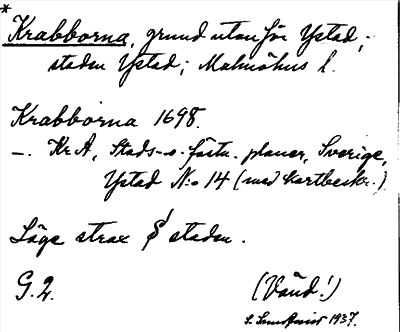 *
Krabborna, grund utanför Ystad;
staden Ystad; Malmöhus l.
Krabborna 1698.
—. KrA, Stads- o. förtn. planer, Sverige,
Ystad N:o 14 (med kartbeskr.)
Läge strax S staden.
G. 2. (Vänd!)
1937.